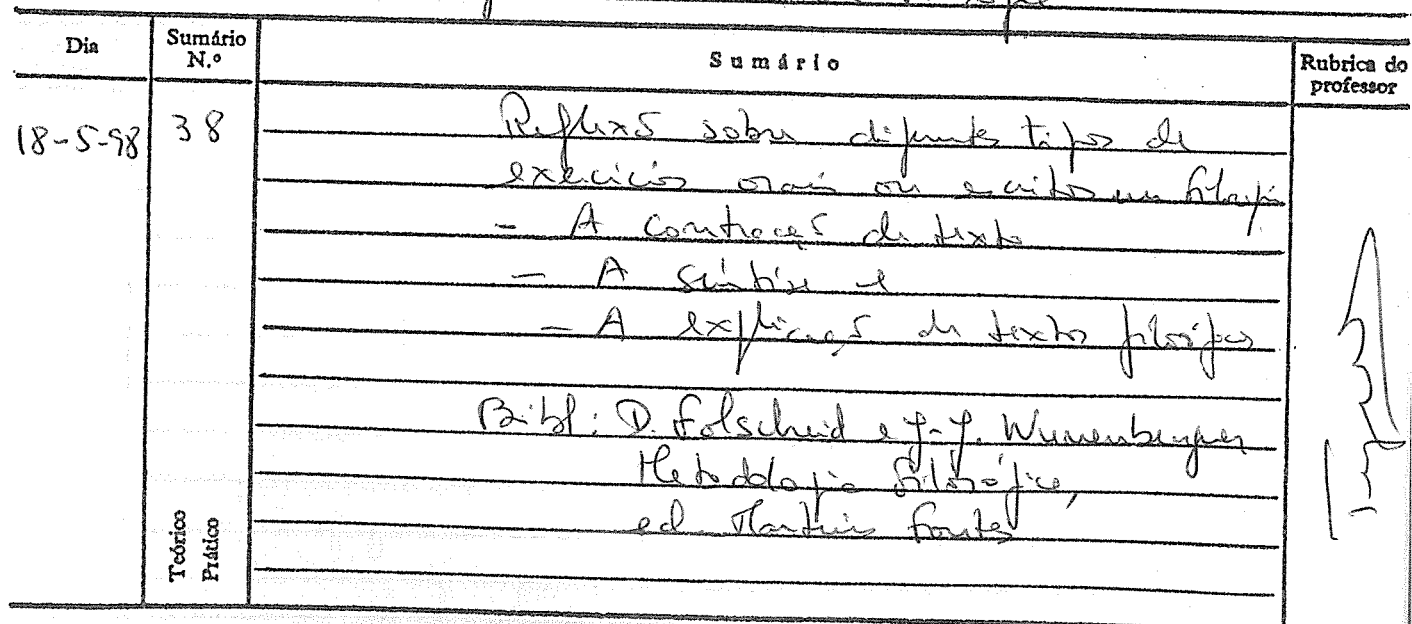 Dia
Sumário N.º
Sumário
Rubrica do professor
18-5-98
38
Reflexão sobre diferentes tipos de
exercícios orais ou escritos em filosofia
- A contracção de texto
- A síntese e
- A explicação de textos filosóficos
Bibl: D. Folscheid e J.-J. Wunenburger
Metodologia filosófica,
ed. Martins Fontes
Teórico
Prático